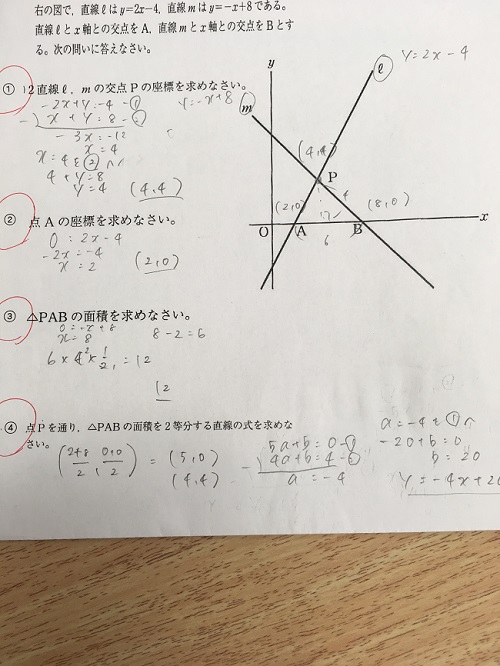 右の図で，直線ℓはy=2x-4，直線mはy=-x+8である。
直線ℓとx軸との交点をA，直線mとx軸との交点をBとす
る。次の問いに答えなさい。
① 2直線ℓ，mの交点Pの座標を求めなさい。
-2x+y=-4-①
y=-x+8
-) x+y=8-②
-3x=-12
x=4
x=4を②へ
4+y=8
y=4
(4,4)
② 点Aの座標を求めなさい。
0=2x-4
-2x=-4
x=2
(2,0)
y
ℓ
y=2x-4
m
(4,4)
P
4
(2,0)
(8,0)
12
O
A
6
B
x
③ △PABの面積を求めなさい。
0=-x+8
x=8
8-2=6
6×4×1/2=12
12
④ 点Pを通り，△PABの面積を2等分する直線の式を求めな
さい。
(2+8/2, 0+0/2) = (5,0)
(4,4)
5a+b=0-①
-) 4a+b=4-②
a=-4
a=-4を①へ
-20+b=0
b=20
y=-4x+20